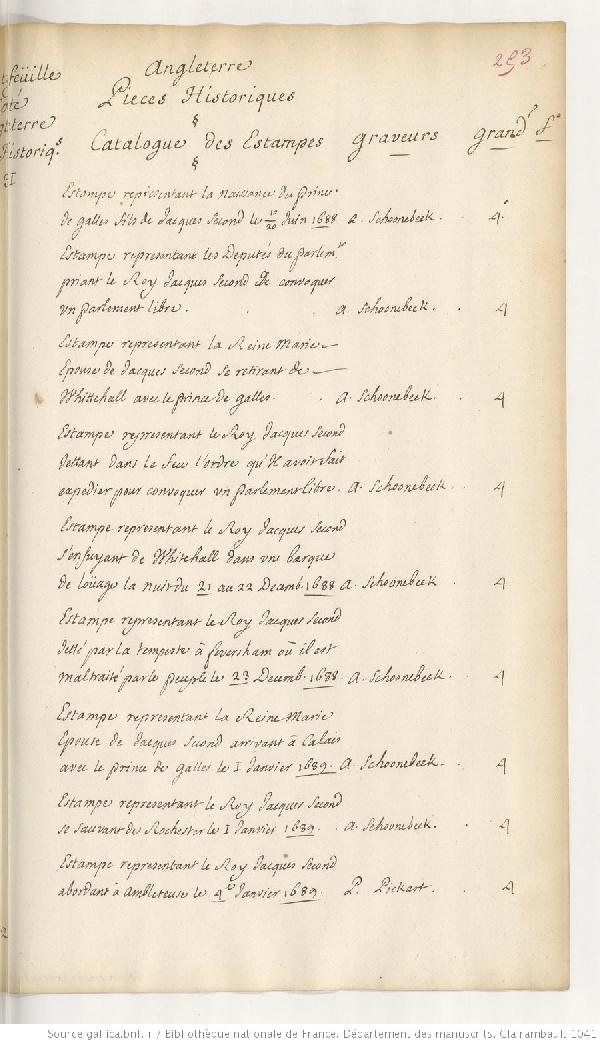 293
Angleterre
Pieces Historiques
§
Catalogue des Estampes graveurs grand fo
§
feüille
oté
gleterre
Historiq.s
21
Estampe representant la naissance du prince
de galles fils de Jacques Second le 10/20 Juin 1688 A. Schoonebeek. 4.o
Estampe representant les Deputés du parlem.t
priant le Roy Jacques Second de convoquer
un parlement libre. A Schoonebeek. 4
Estampe representant la Reine Marie
Epouse de Jacques Second se retirant de
Whittehall avec le prince de galles. A. Schoonebeek. 4
Estampe representant le Roy Jacques Second
Jettant dans le feu l'ordre qu'Il avoit fait
expedier pour convoquer un parlement libre. A. Schoonebeek. 4
Estampe representant le Roy Jacques Second
s'enfuyant de Whitehall dans une barque
de loüage la nuit du 21 au 22 Decemb. 1688 A. Schoonebeek. 4
Estampe representant le Roy Jacques Second
Jetté par la tempeste à feversham où il est
maltraité par le peuple le 23 Decemb. 1688. A. Schoonebeek. 4
Estampe representant la Reine Marie
Epouse de Jacques Second arrivant à Calais
avec le prince de galles le 1 Janvier 1689. A. Schoonebeek. 4
Estampe representant le Roy Jacques Second
se sauvant de Rochester le 1 Janvier 1689. A. Schoonebeek. 4
Estampe representant le Roy Jacques Second
abordant à Ambleteuse le 4e Janvier 1689. P. Pickart. 4
2
Source gallica.bnf.fr / Bibliothèque nationale de France. Département des manuscrits. Clairambault 1041